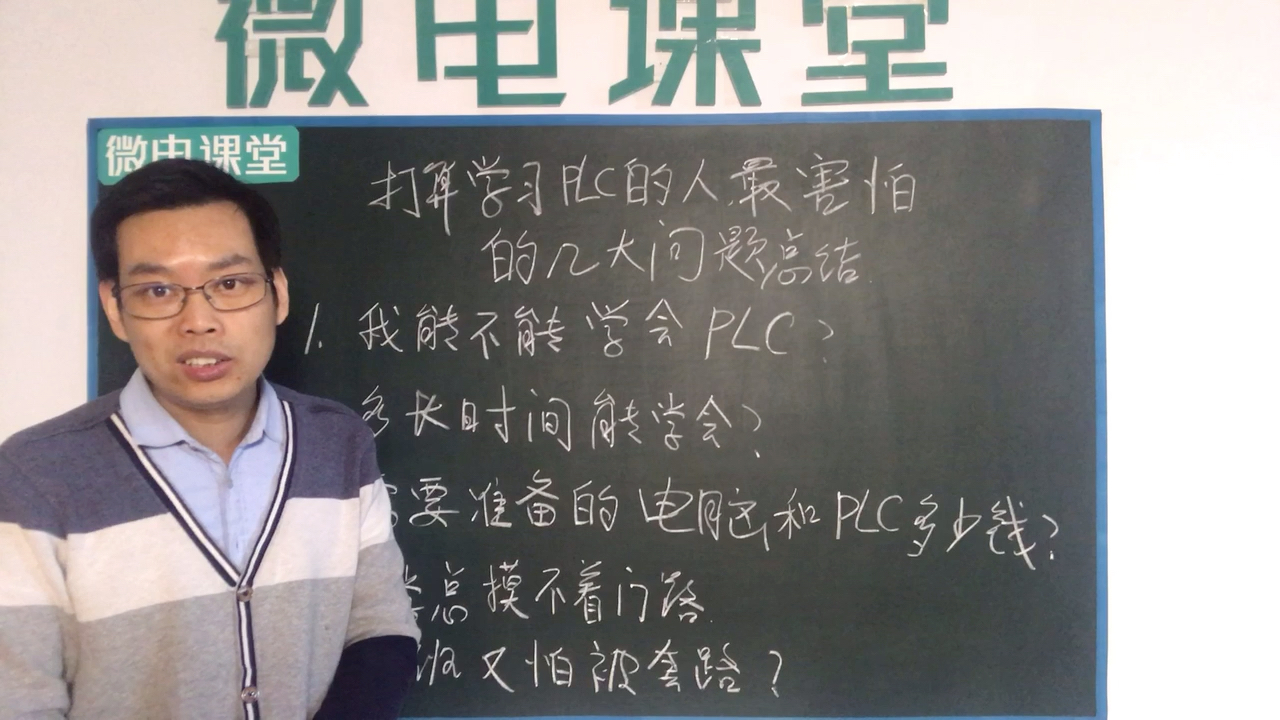 微电课堂
微电课堂
打算学习PLC的人最害怕
的几大问题总结
1. 我能不能学会PLC?
多长时间能学会?
要准备的电脑和PLC多少钱?
总摸不着门路
班又怕被套路?